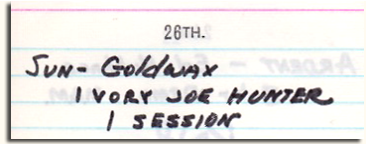 26TH.
SUN- GOLDWAX
IVORY JOE HUNTER
1 SESSION